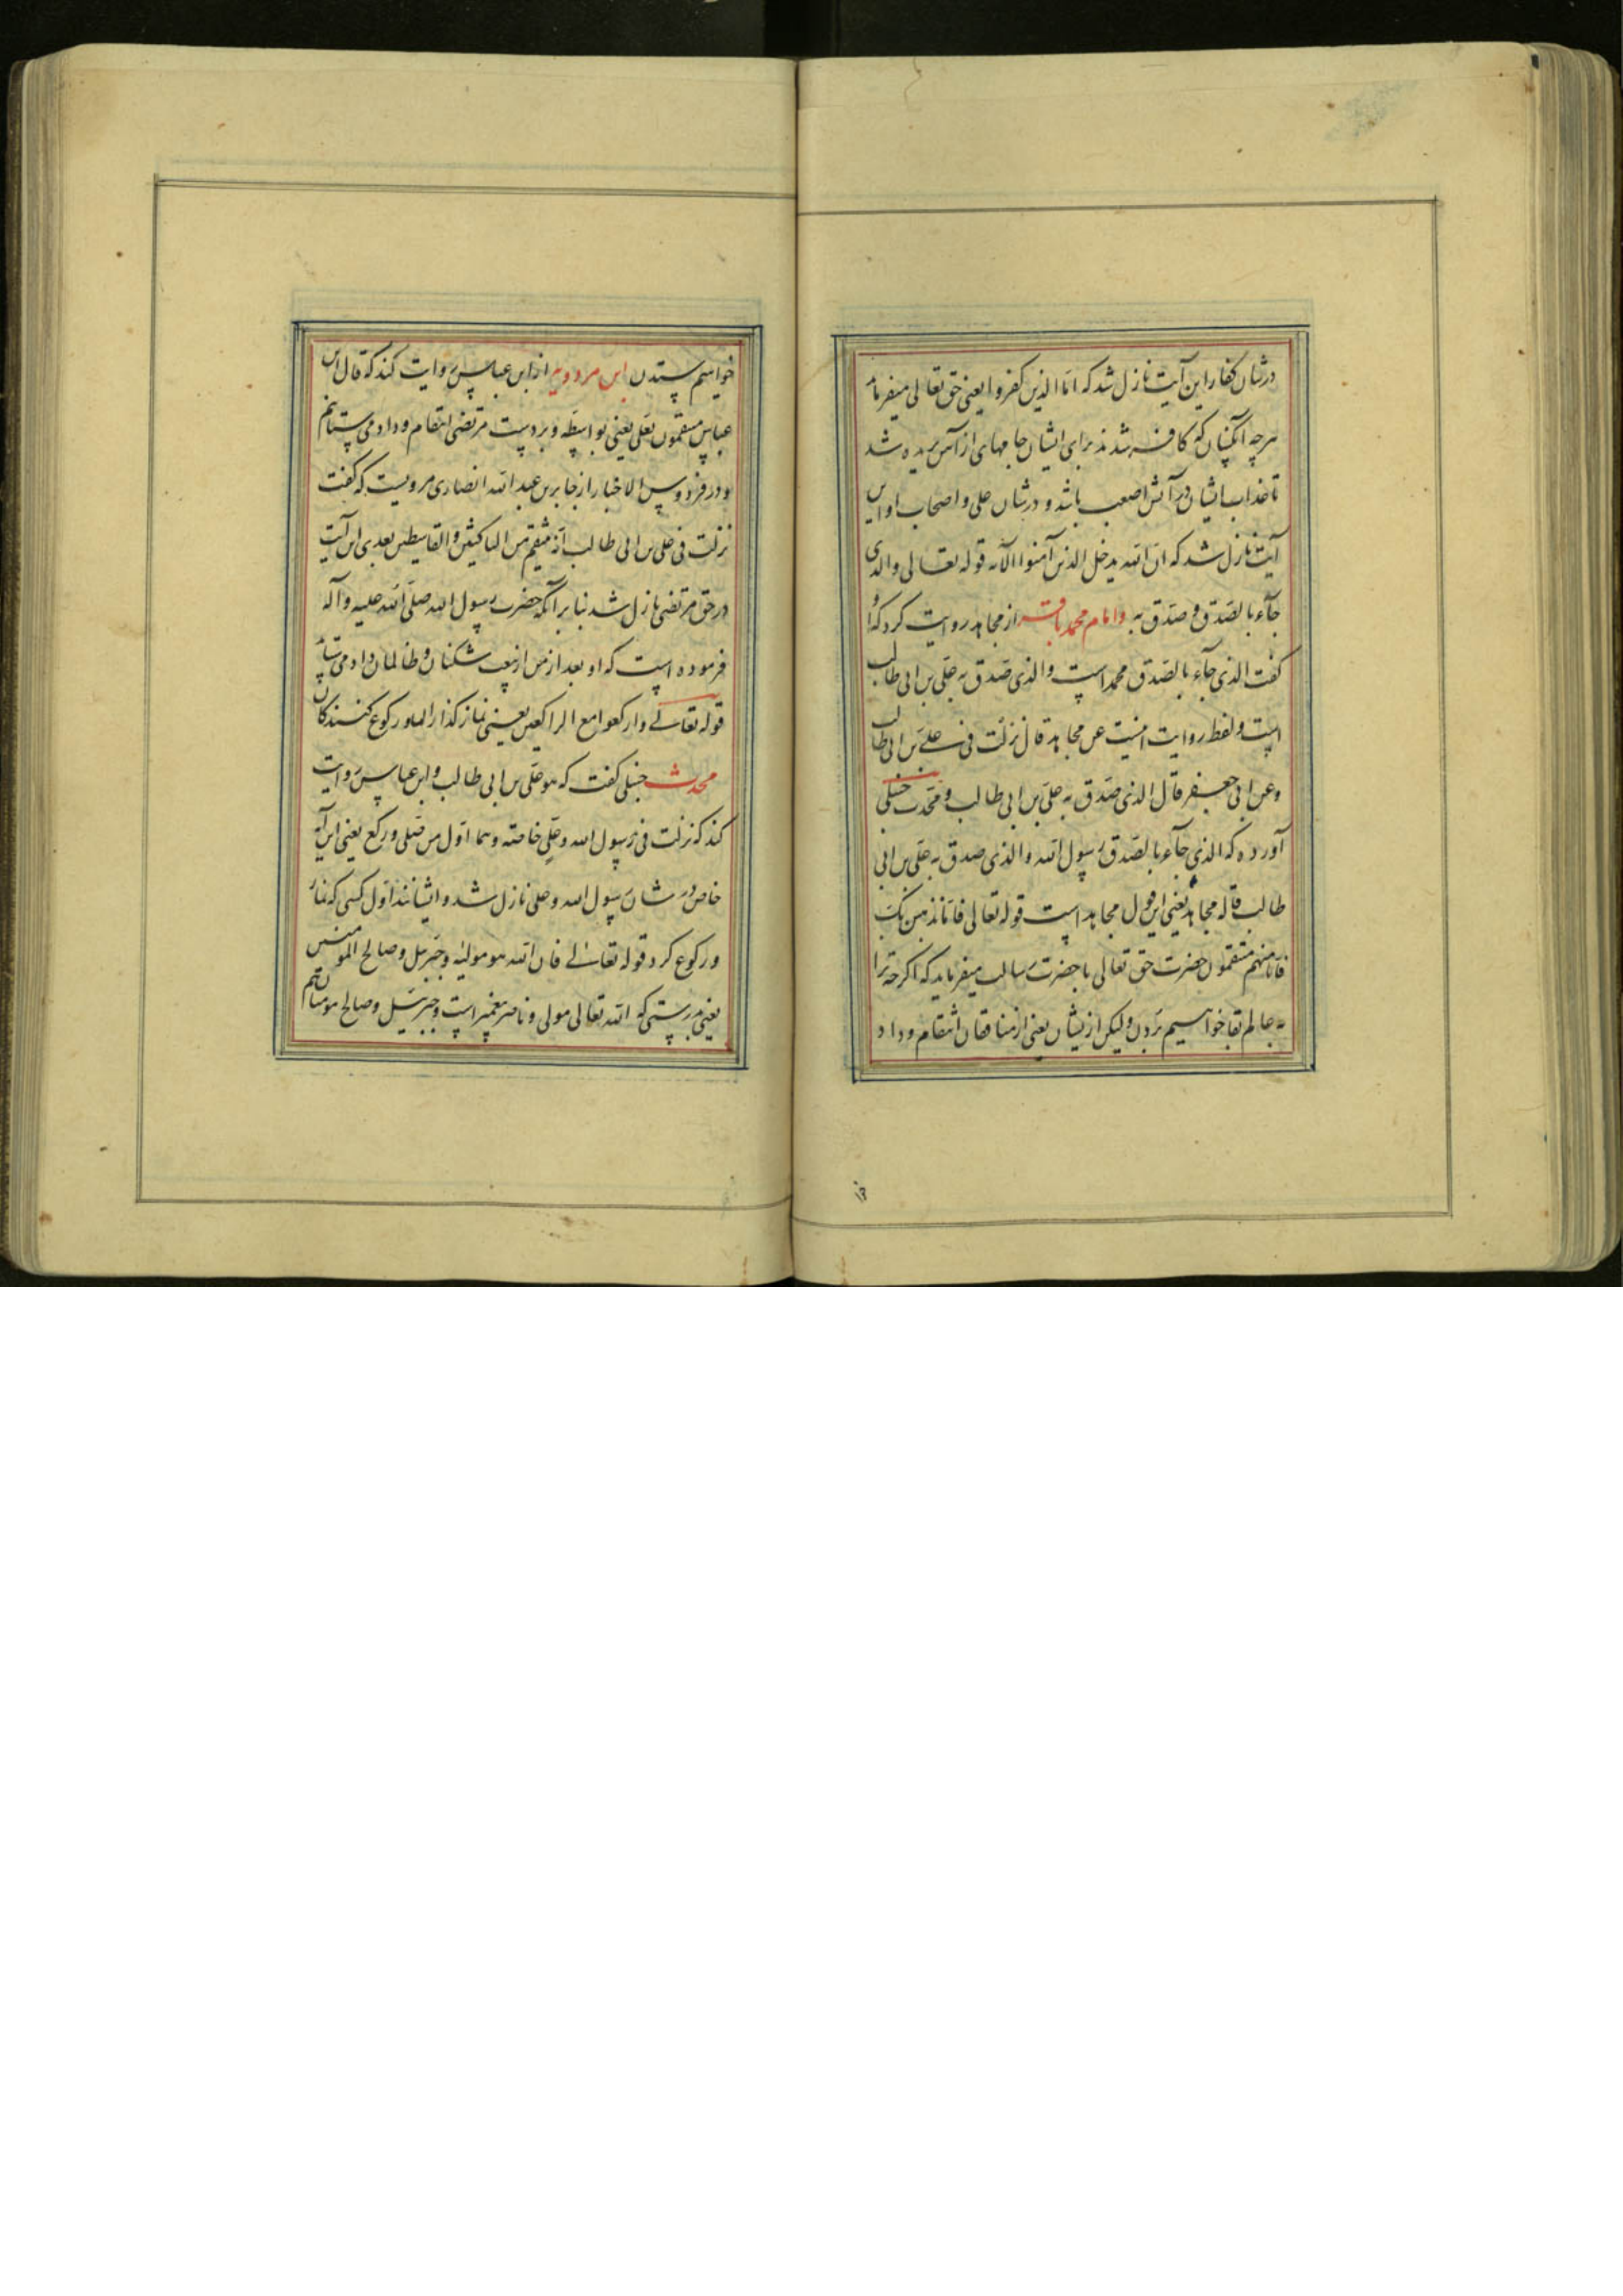 در شان کفار این آیت نازل شد که اما الذین کفروا یعنی حق تعالی میفرماید
هرچه آنکسان که کافر شدند برای ایشان جامهای از آتش بریده شد
تا عذاب ایشان در آتش اصعب باشد و در شان علی و اصحاب او این
آیت نازل شد که ان الله یدخل الذین آمنوا الآیه قوله تعالی والذی
جآء بالصدق و صدق به و امام محمد باقر از مجاهد روایت کرد که او
گفت الذی جآء بالصدق محمد است و الذی صدق به علی بن ابی طالب
است و لفظ روایت اینست عن مجاهد قال نزلت فی علی بن ابی طالب
و عن ابی جعفر قال الذی صدق به علی بن ابی طالب و محدث حنبلی
آورده که الذی جآء بالصدق رسول الله و الذی صدق به علی بن ابی
طالب قاله مجاهد یعنی این قول مجاهد است قوله تعالی فاما نذهبن بک
فانا منهم منتقمون حضرت حق تعالی با حضرت رسالت میفرماید که اگرچه ترا
به عالم بقا خواهیم بردن ولیکن ازیشان یعنی از منافقان انتقام و داد
خواهیم ستدن ابن مردویه از ابن عباس روایت کند که قال ابن
عباس منتقمون بعلی یعنی بواسطه و بر دست مرتضی انتقام و داد می ستانم
و در فردوس الاخبار از جابر بن عبد الله انصاری مرویست که گفت
نزلت فی علی بن ابی طالب انه منتقم من الناکثین و القاسطین بعدی این آیت
در حق مرتضی نازل شد بنابر آنکه حضرت رسول الله صلی الله علیه و آله
فرموده است که او بعد از من از بیعت شکنان و ظالمان داد می ستاند
قوله تعالی وارکعوا مع الراکعین یعنی نماز گذارید با رکوع کنندگان
محدث حنبلی گفت که هو علی بن ابی طالب و ابن عباس روایت
کند که نزلت فی رسول الله و علی خاصة و هما اول من صلی و رکع یعنی این آیه
خاص در شان رسول الله و علی نازل شد و ایشانند اول کسی که نماز
و رکوع کرد قوله تعالی فان الله هو مولیه و جبریل و صالح المومنین
یعنی بدرستی که الله تعالی مولی و ناصر پیغمبر است و جبرئیل و صالح مومنان هم